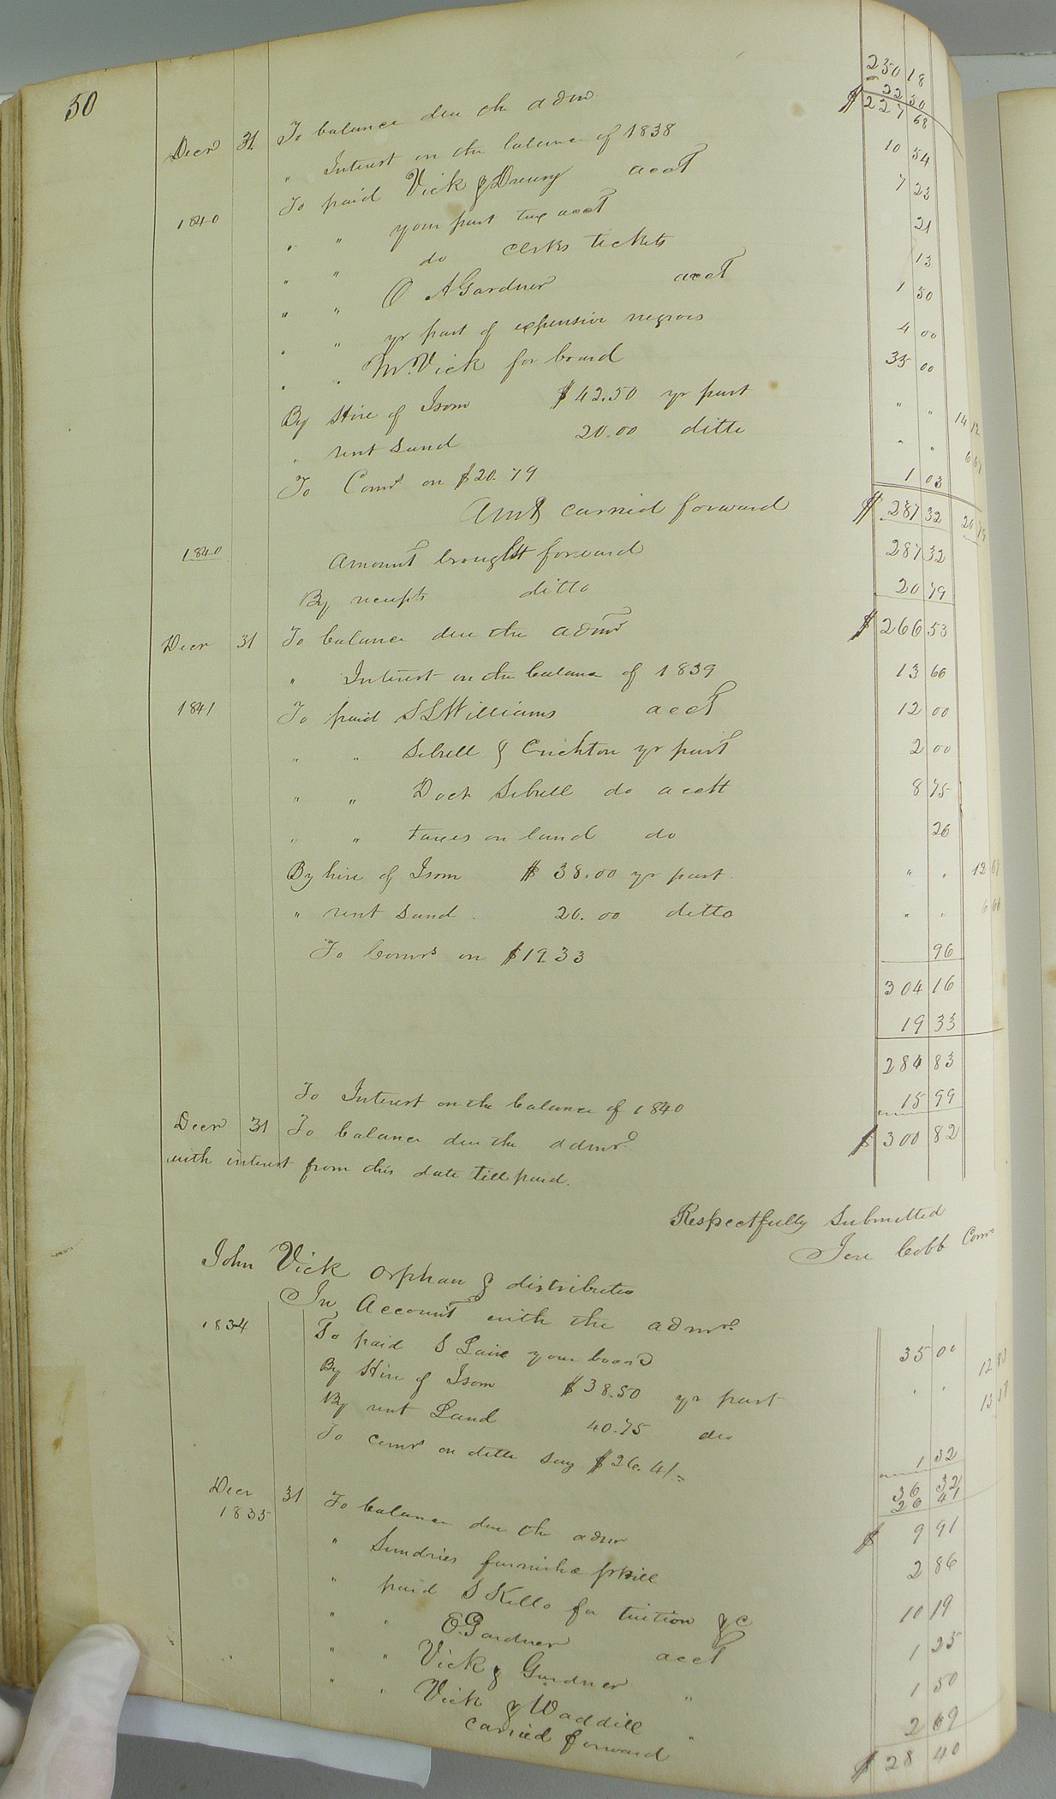 50
250 18
22 50
Decr 31 To balance due the admr $ 227 68
" Interest on the balance of 1838 10 54
1840 To paid Vick & Drewry acct 7 23
" " your part tax acct 21
" " do clerks tickets 13
" " O A Gardner acct 1 50
" " yr part of expensive negroes 4 00
" " M. Vick for board 35 00
By Hire of Isom $42.50 yr part " " 14 12
" rent Land 20.00 ditto " " 6 67
To Comr on $20.79 1 03
Amt carried forward $ 287 32 20 79
1840 Amount brought forward 287 32
By receipts ditto 20 79
Decr 31 To balance due the admr $ 266 53
" Interest on the balance of 1839 13 66
1841 To paid S L Williams acct 12 00
" " Sebrell & Crichton yr part 2 00
" " Doct Sebrell do acctt 8 75
" " taxes on land do 26
By hire of Isom $ 38.00 yr part " " 12 67
" rent Land 20.00 ditto " " 6 66
To Comrs on $19 33 96
304 16
19 33
284 83
To Interest on the balance of 1840 15 99
Decr 31 To balance due the admr $ 300 82
with interest from this date till paid.
Respectfully Submitted
Jere Cobb Comr
John Vick orphan & distributee
In Account with the admr
1834 To paid S Laine your board 35 00
By Hire of Isom $38.50 yr part " " 12 83
By rent Land 40.75 do 13 58
To comr on ditto say $26.41/= 1 32
36 32
26 41
Decr 31 To balance due the admr $ 9 91
1835 " Sundries furnishd pr bill 2 86
" paid S Kello for tuition &c 10 19
" " E. Gardner acct 1 25
" " Vick & Gardner " 1 50
" " Vick & Waddill " 2 69
carried forward $ 28 40